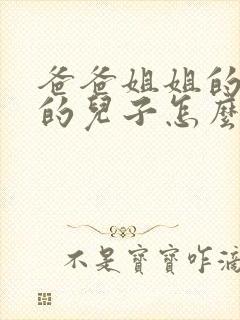 爸爸姐姐的
的兒子怎麼
不是寶寶咋滴